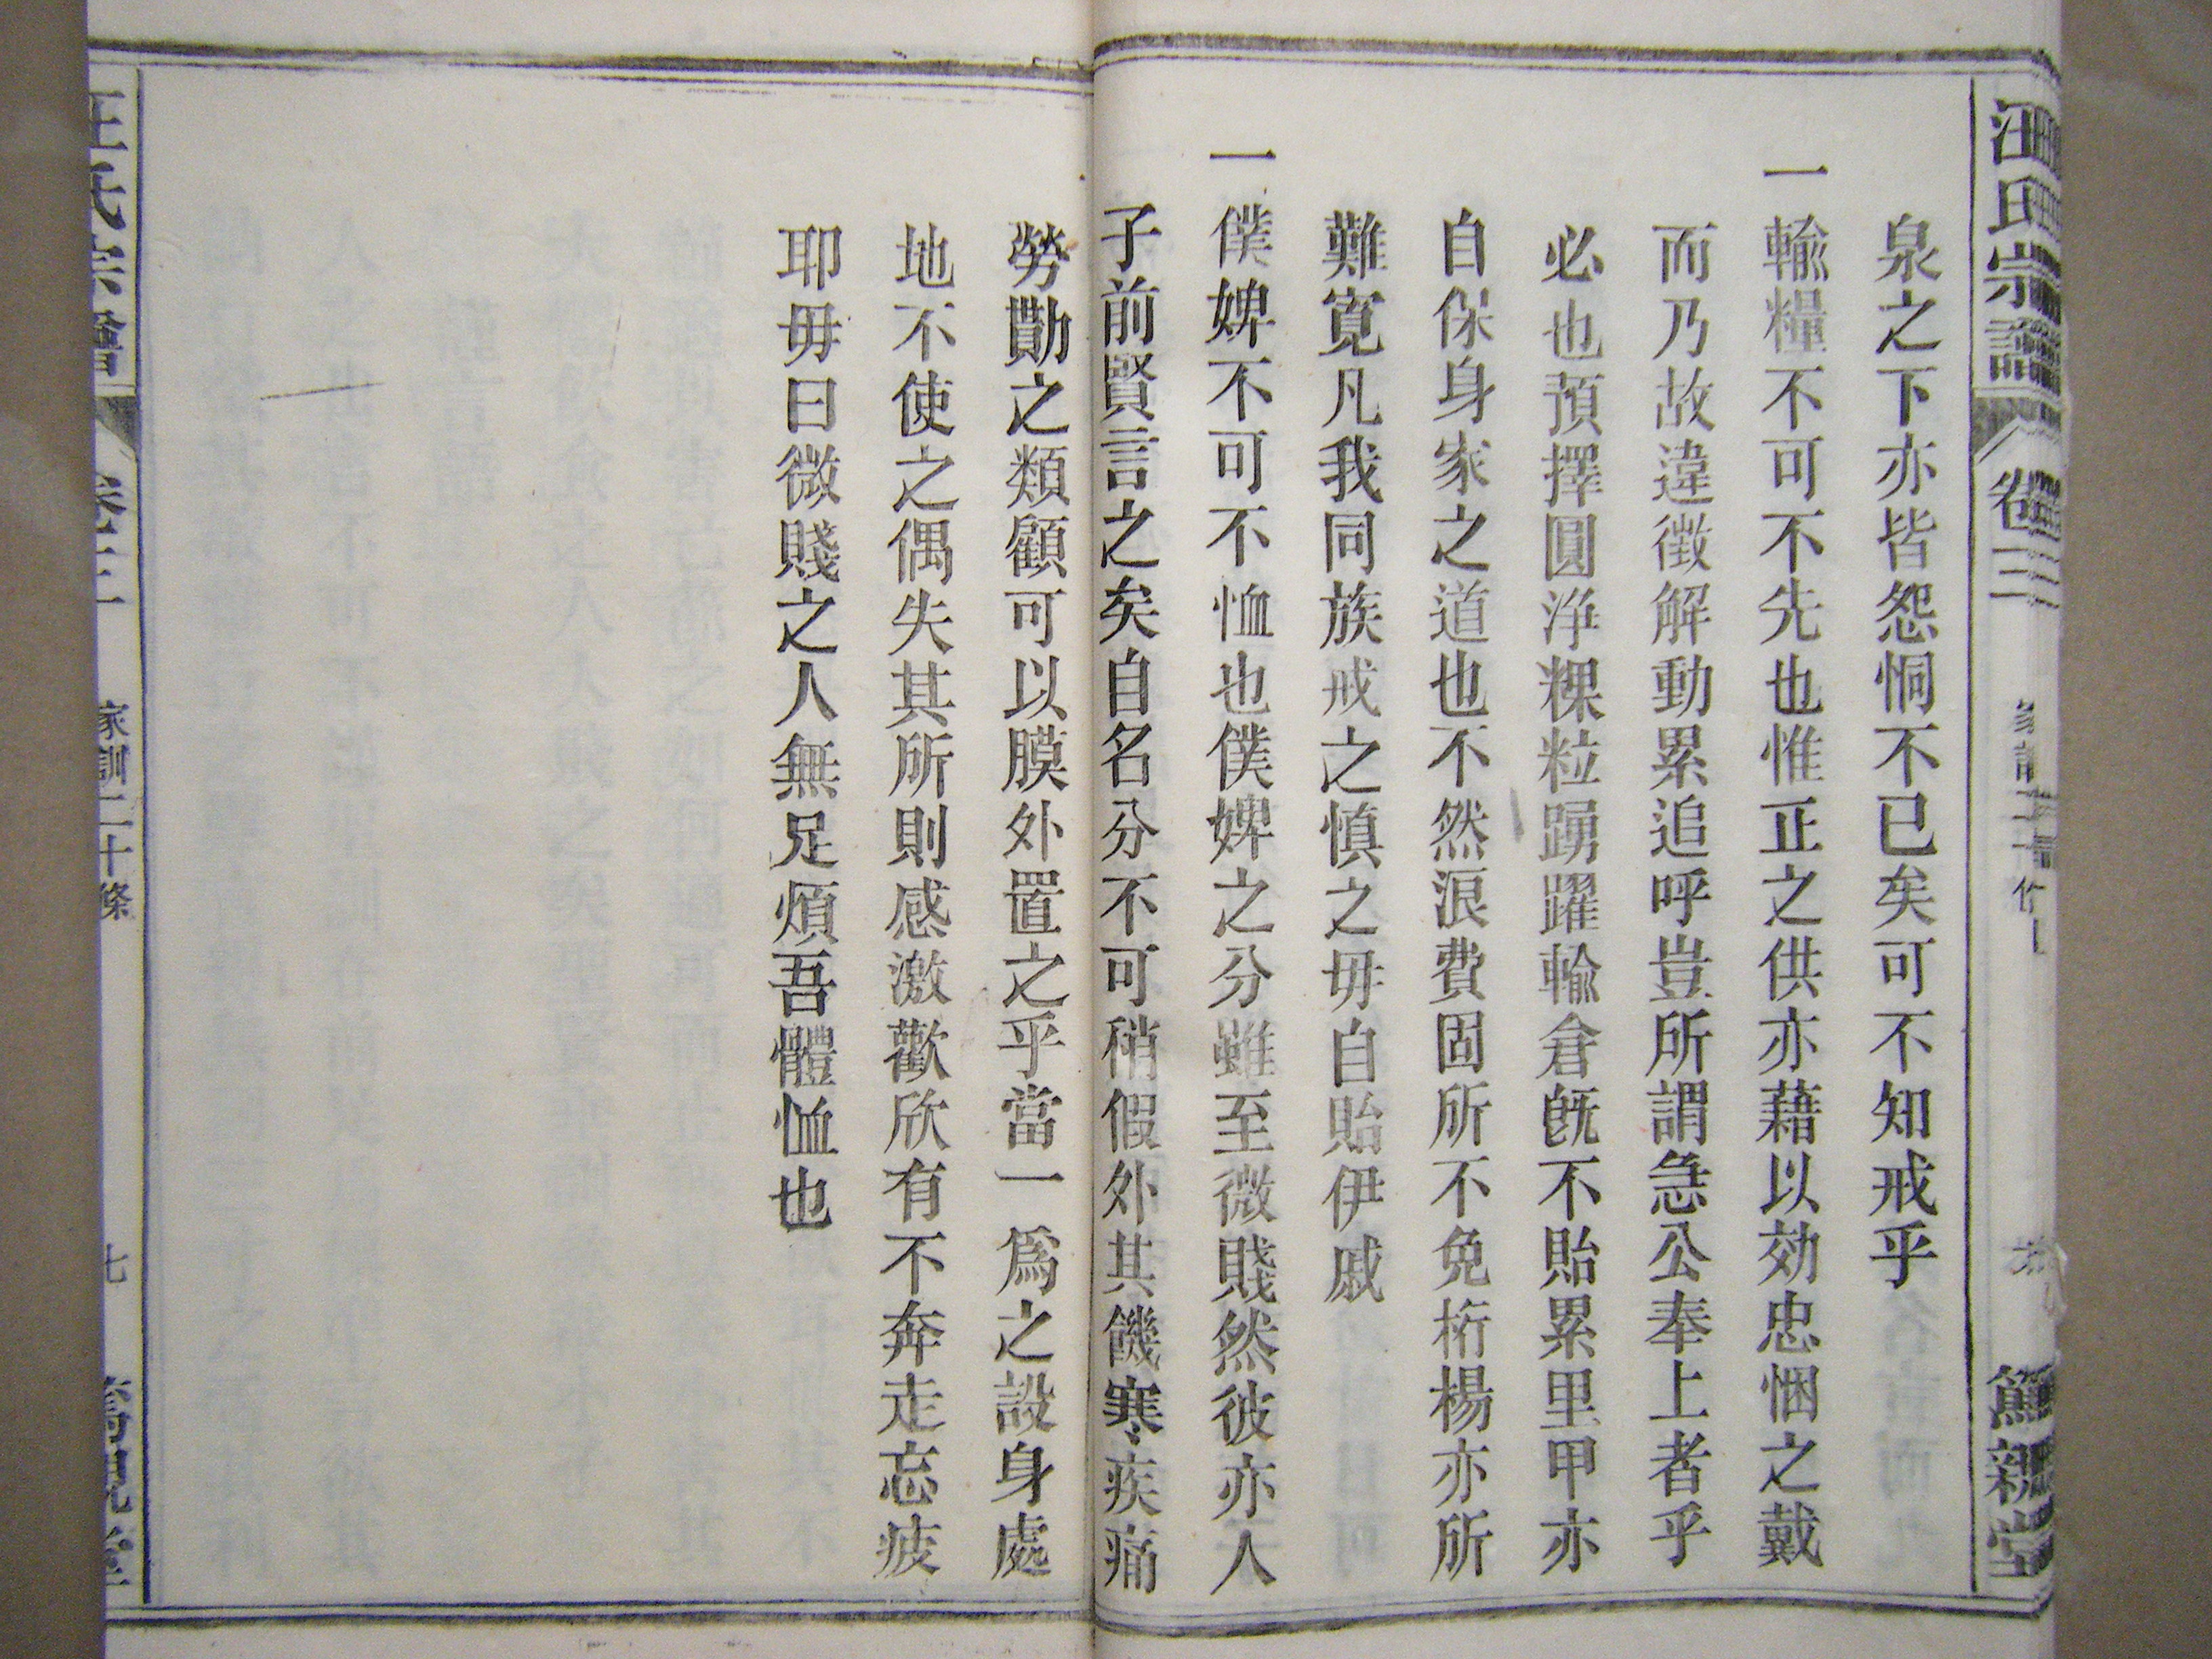 汪氏宗譜 卷三
親堂
泉之下亦皆怨恫不已矣可不知戒乎
一輸糧不可不先也惟正之供亦藉以効忠悃之戴
而乃故違徵解動累追呼豈所謂急公奉上者乎
必也預擇圓淨粿粒踴躍輸倉旣不貽累里甲亦
自保身家之道也不然浪費固所不免桁楊亦所
難寬凡我同族戒之慎之毋自貽伊戚
一僕婢不可不恤也僕婢之分雖至微賤然彼亦人
子前賢言之矣自名分不可稍假外其饑寒疾痛
勞勩之類顧可以膜外置之乎當一爲之設身處
地不使之偶失其所則感激歡欣有不奔走忘疲
耶毋曰微賤之人無足煩吾體恤也
家訓二十條 七